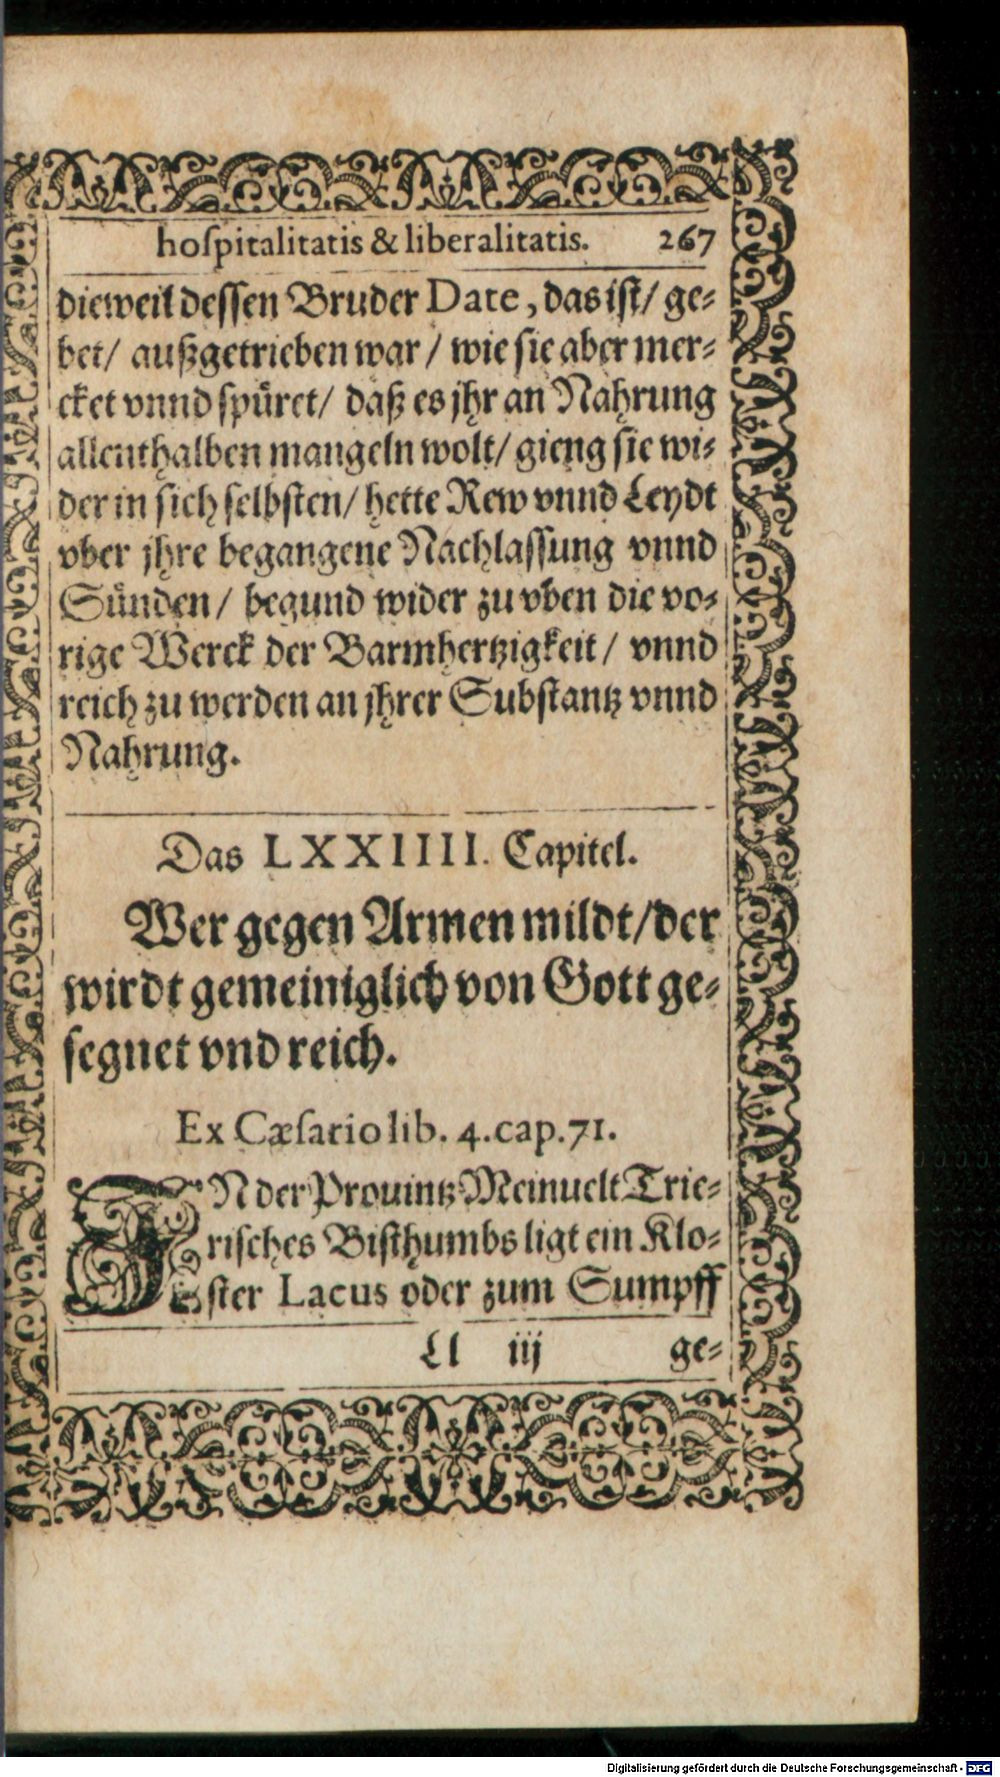 hoſpitalitatis & liberalitatis. 267
dieweil deſſen Bruder Date, das iſt/ ge-
bet/ außgetrieben war/ wie ſie aber mer-
cket vnnd ſpüret/ daß es jhr an Nahrung
allenthalben mangeln wolt/ gieng ſie wi-
der in ſich ſelbſten/ hette Rew vnnd Leydt
vber jhre begangene Nachlaſſung vnnd
Sünden/ begund wider zu vben die vo-
rige Werck der Barmhertzigkeit/ vnnd
reich zu werden an jhrer Subſtantz vnnd
Nahrung.
Das LXXIIII. Capitel.
Wer gegen Armen mildt/der
wirdt gemeiniglich von Gott ge-
ſegnet vnd reich.
Ex Cæſario lib. 4. cap. 71.
IN der Prouintz Meinuelt Trie-
riſches Biſthumbs ligt ein Klo-
ſter Lacus oder zum Sumpff
Ll iij ge-
Digitalisierung gefördert durch die Deutsche Forschungsgemeinschaft - DFG